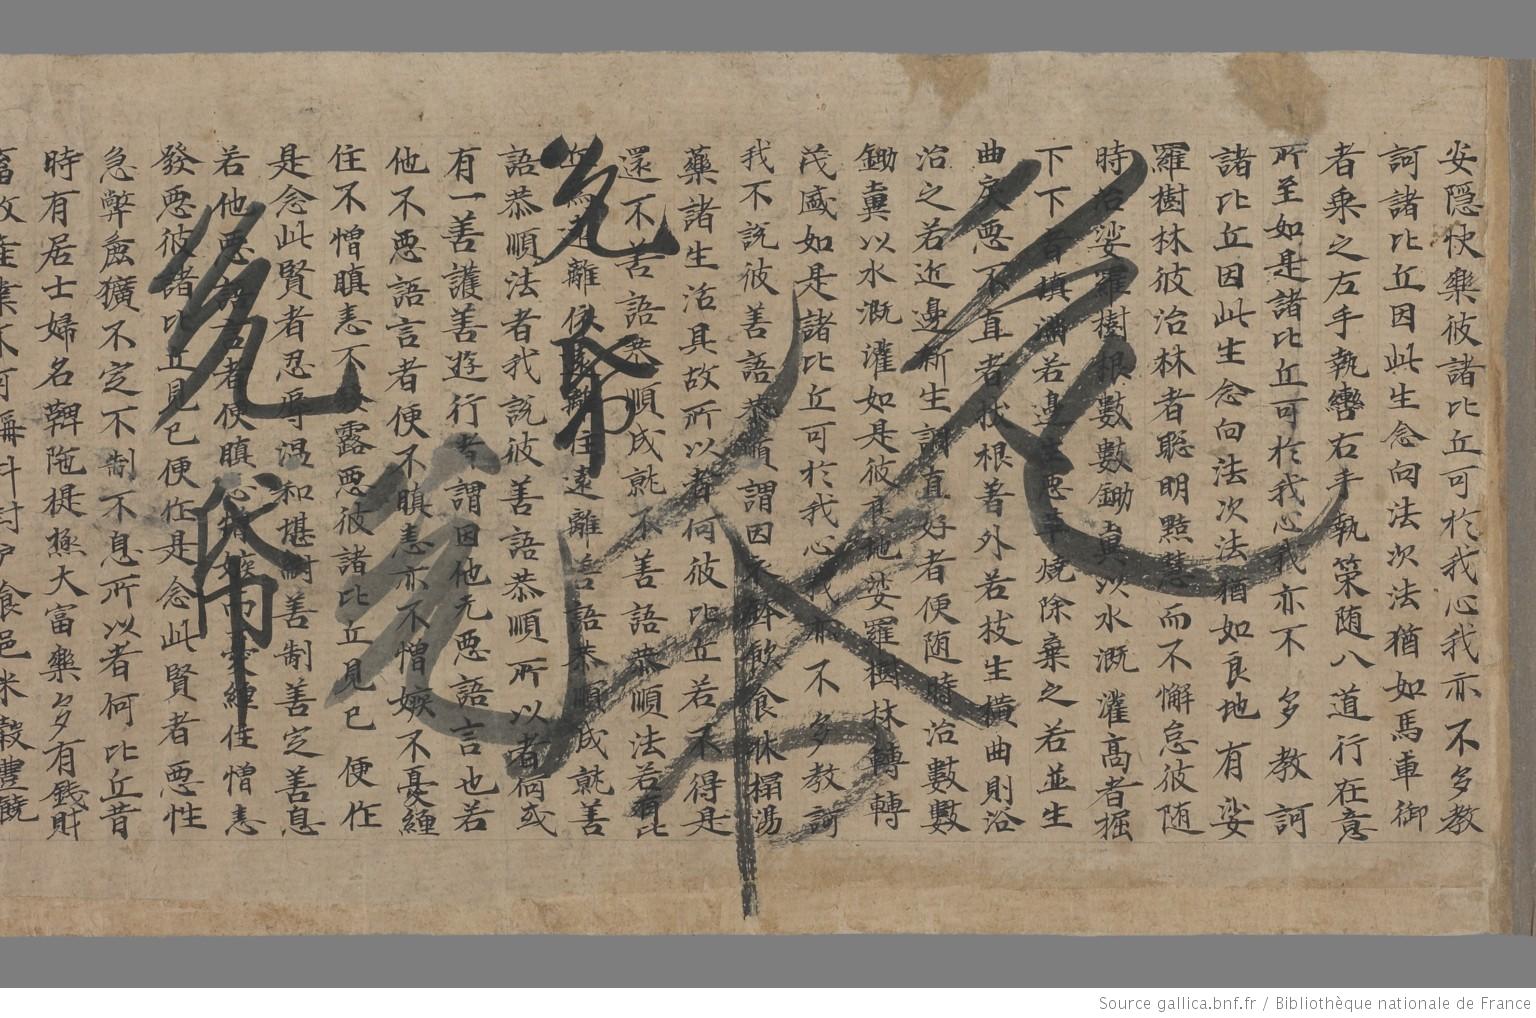 安隱快樂彼諸比丘可於我心我亦不多教
訶諸比丘因此生念向法次法猶如馬車御
者乘之左手執轡右手執策随八道行在意
所至如是諸比丘可於我心我亦不多教訶
諸比丘因此生念向法次法猶如良地有娑
羅樹林彼治林者聡明黠慧而不懈怠彼随
時治娑羅樹根數數鋤糞以水溉灌高者掘
下下者填滿若邊生惡草除棄之若並生
曲戾惡不直者拔根著外若枝生橫曲則治
治之若近邊新生調直好者便随時治數數
鋤糞以水溉灌如是彼良地娑羅樹林轉轉
茂盛如是諸比丘可於我心我亦不多教訶
我不說彼善語恭順謂因衣鉢飲食牀榻湯
藥諸生活具故所以者何彼比丘若不得是
還不善語恭順成就不善語恭順法若有比
丘為遠離依遠離住遠離善語恭順成就善
語恭順法者我說彼善語恭順所以者何或
有一善護善逝行者謂因他无惡語言也若
他不惡語言者便不瞋恚亦不憎嫉不憂纏
住不憎瞋恚不發露惡彼諸比丘見已便作
是念此賢者忍辱溫和堪耐善制善定善息
若他惡語言者便瞋恚憎嫉而憂纏住憎恚
發惡彼諸比丘見已便作是念此賢者惡性
急弊麁獷不定不制不息所以者何比丘昔
時有居士婦名鞞陁提極大富樂多有錢財
畜牧產業不可稱計封户食邑米穀豐饒
Source gallica.bnf.fr / Bibliothèque nationale de France